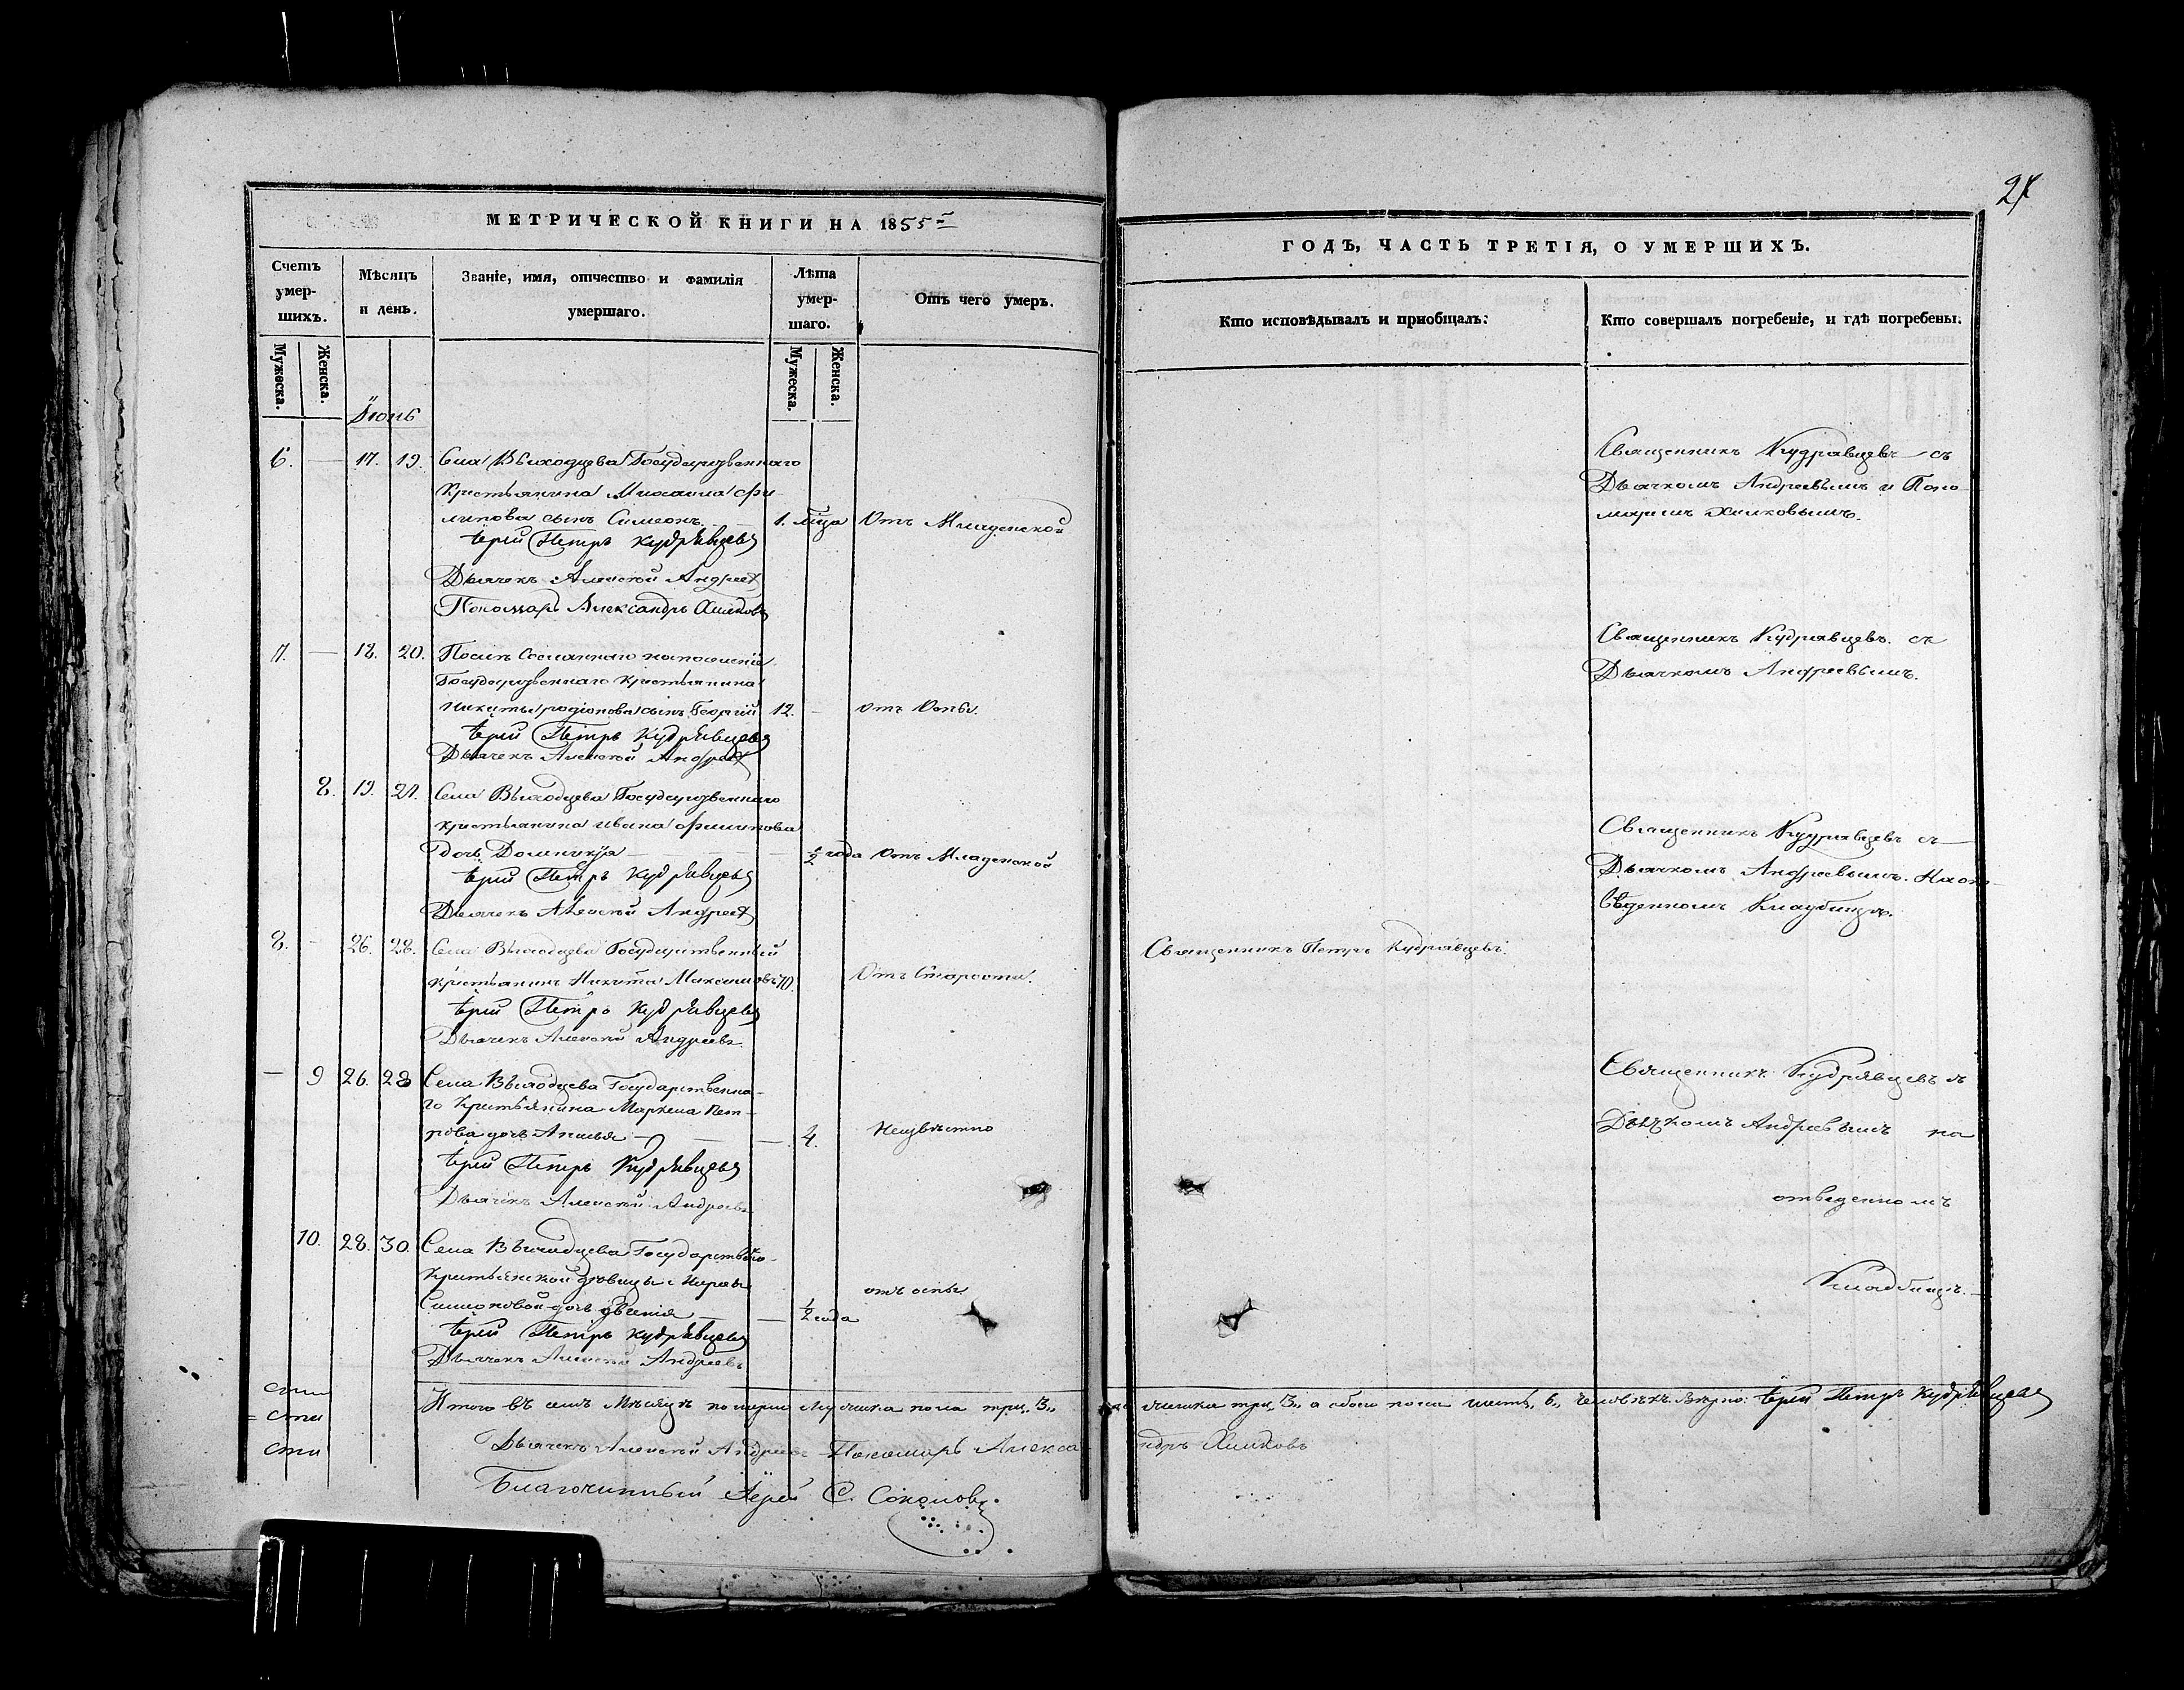 27
МЕТРИЧЕСКОЙ КНИГИ НА 1855й
ГОДЪ, ЧАСТЬ ТРЕТІЯ, О УМЕРШИХЪ.
Счетъ умершихъ.
Мѣсяцъ и день.
Званіе, имя, отчество и фамилія умершаго.
Лѣта умершаго.
Отъ чего умеръ.
Кто исповѣдывалъ и пріобщалъ:
Кто совершалъ погребеніе, и гдѣ погребены.
Мужеска.
Женска.
Мужеска.
Женска.
Іюнь
6. — 17. 19. Села Выходцева Государственнаго
Крестьянина Михаила Фи
липова сынъ Симеонъ. — 1. года Отъ Младенской
Іерей Петръ Кудрявцевъ
Дьячекъ Алексѣй Андреевъ
Пономарь Александръ Хилковъ
Священникъ Кудрявцевъ съ
Дьячкомъ Андреевымъ и Поно
маремъ Хилковымъ.
7. — 18. 20.
Государственнаго Крестьянина
Никиты Родіонова сынъ Георгій 12. — Отъ Оспы.
Іерей Петръ Кудрявцевъ
Дьячекъ Алексѣй Андреевъ
Священникъ Кудрявцевъ. съ
Дьячкомъ Андреевымъ.
8. 19. 21. Села Выходцева Государственнаго
крестьянина Ивана Филипова
дочь Домникія — ½ года Отъ Младенской
Іерей Петръ Кудрявцевъ
Дьячекъ Алексѣй Андреевъ
Священникъ Кудрявцевъ съ
Дьячкомъ Андреевымъ. На от
вѣденномъ Кладбищѣ.
8. — 26. 28. Села Выходцева Государственный
крестьянинъ Никита Максимовъ 70. Отъ Старости.
Іерей Петръ Кудрявцевъ
Дьячекъ Алексѣй Андреевъ.
Священникъ Петръ Кудрявцевъ.
— 9 26. 28 Села Выходцева Государственна-
го Крестьянина Маркела Пет-
рова дочь — 4. Неизвѣстно
Іерей Петръ Кудрявцевъ
Дьячекъ Алексѣй Андреевъ
Священникъ Кудрявцевъ съ
Дьячкомъ Андреевымъ на
отведенномъ
Кладбищѣ.
10. 28. 30. Села Выходцева Государствен
Крестьянской дѣвицы
Симоновой дочь — ½ года отъ оспы
Іерей Петръ Кудрявцевъ
Дьячекъ Алексѣй Андреевъ
Итого въ семъ Мѣсяцѣ померло мужеска пола три. 3., женска три. 3., а обоего пола шесть, 6., человѣкъ. Вѣрно: Іерей Петръ Кудрявцевъ
Дьячекъ Алексѣй Андреевъ Пономарь Александръ Хилковъ
Благочинный Іерей С. Соколовъ.